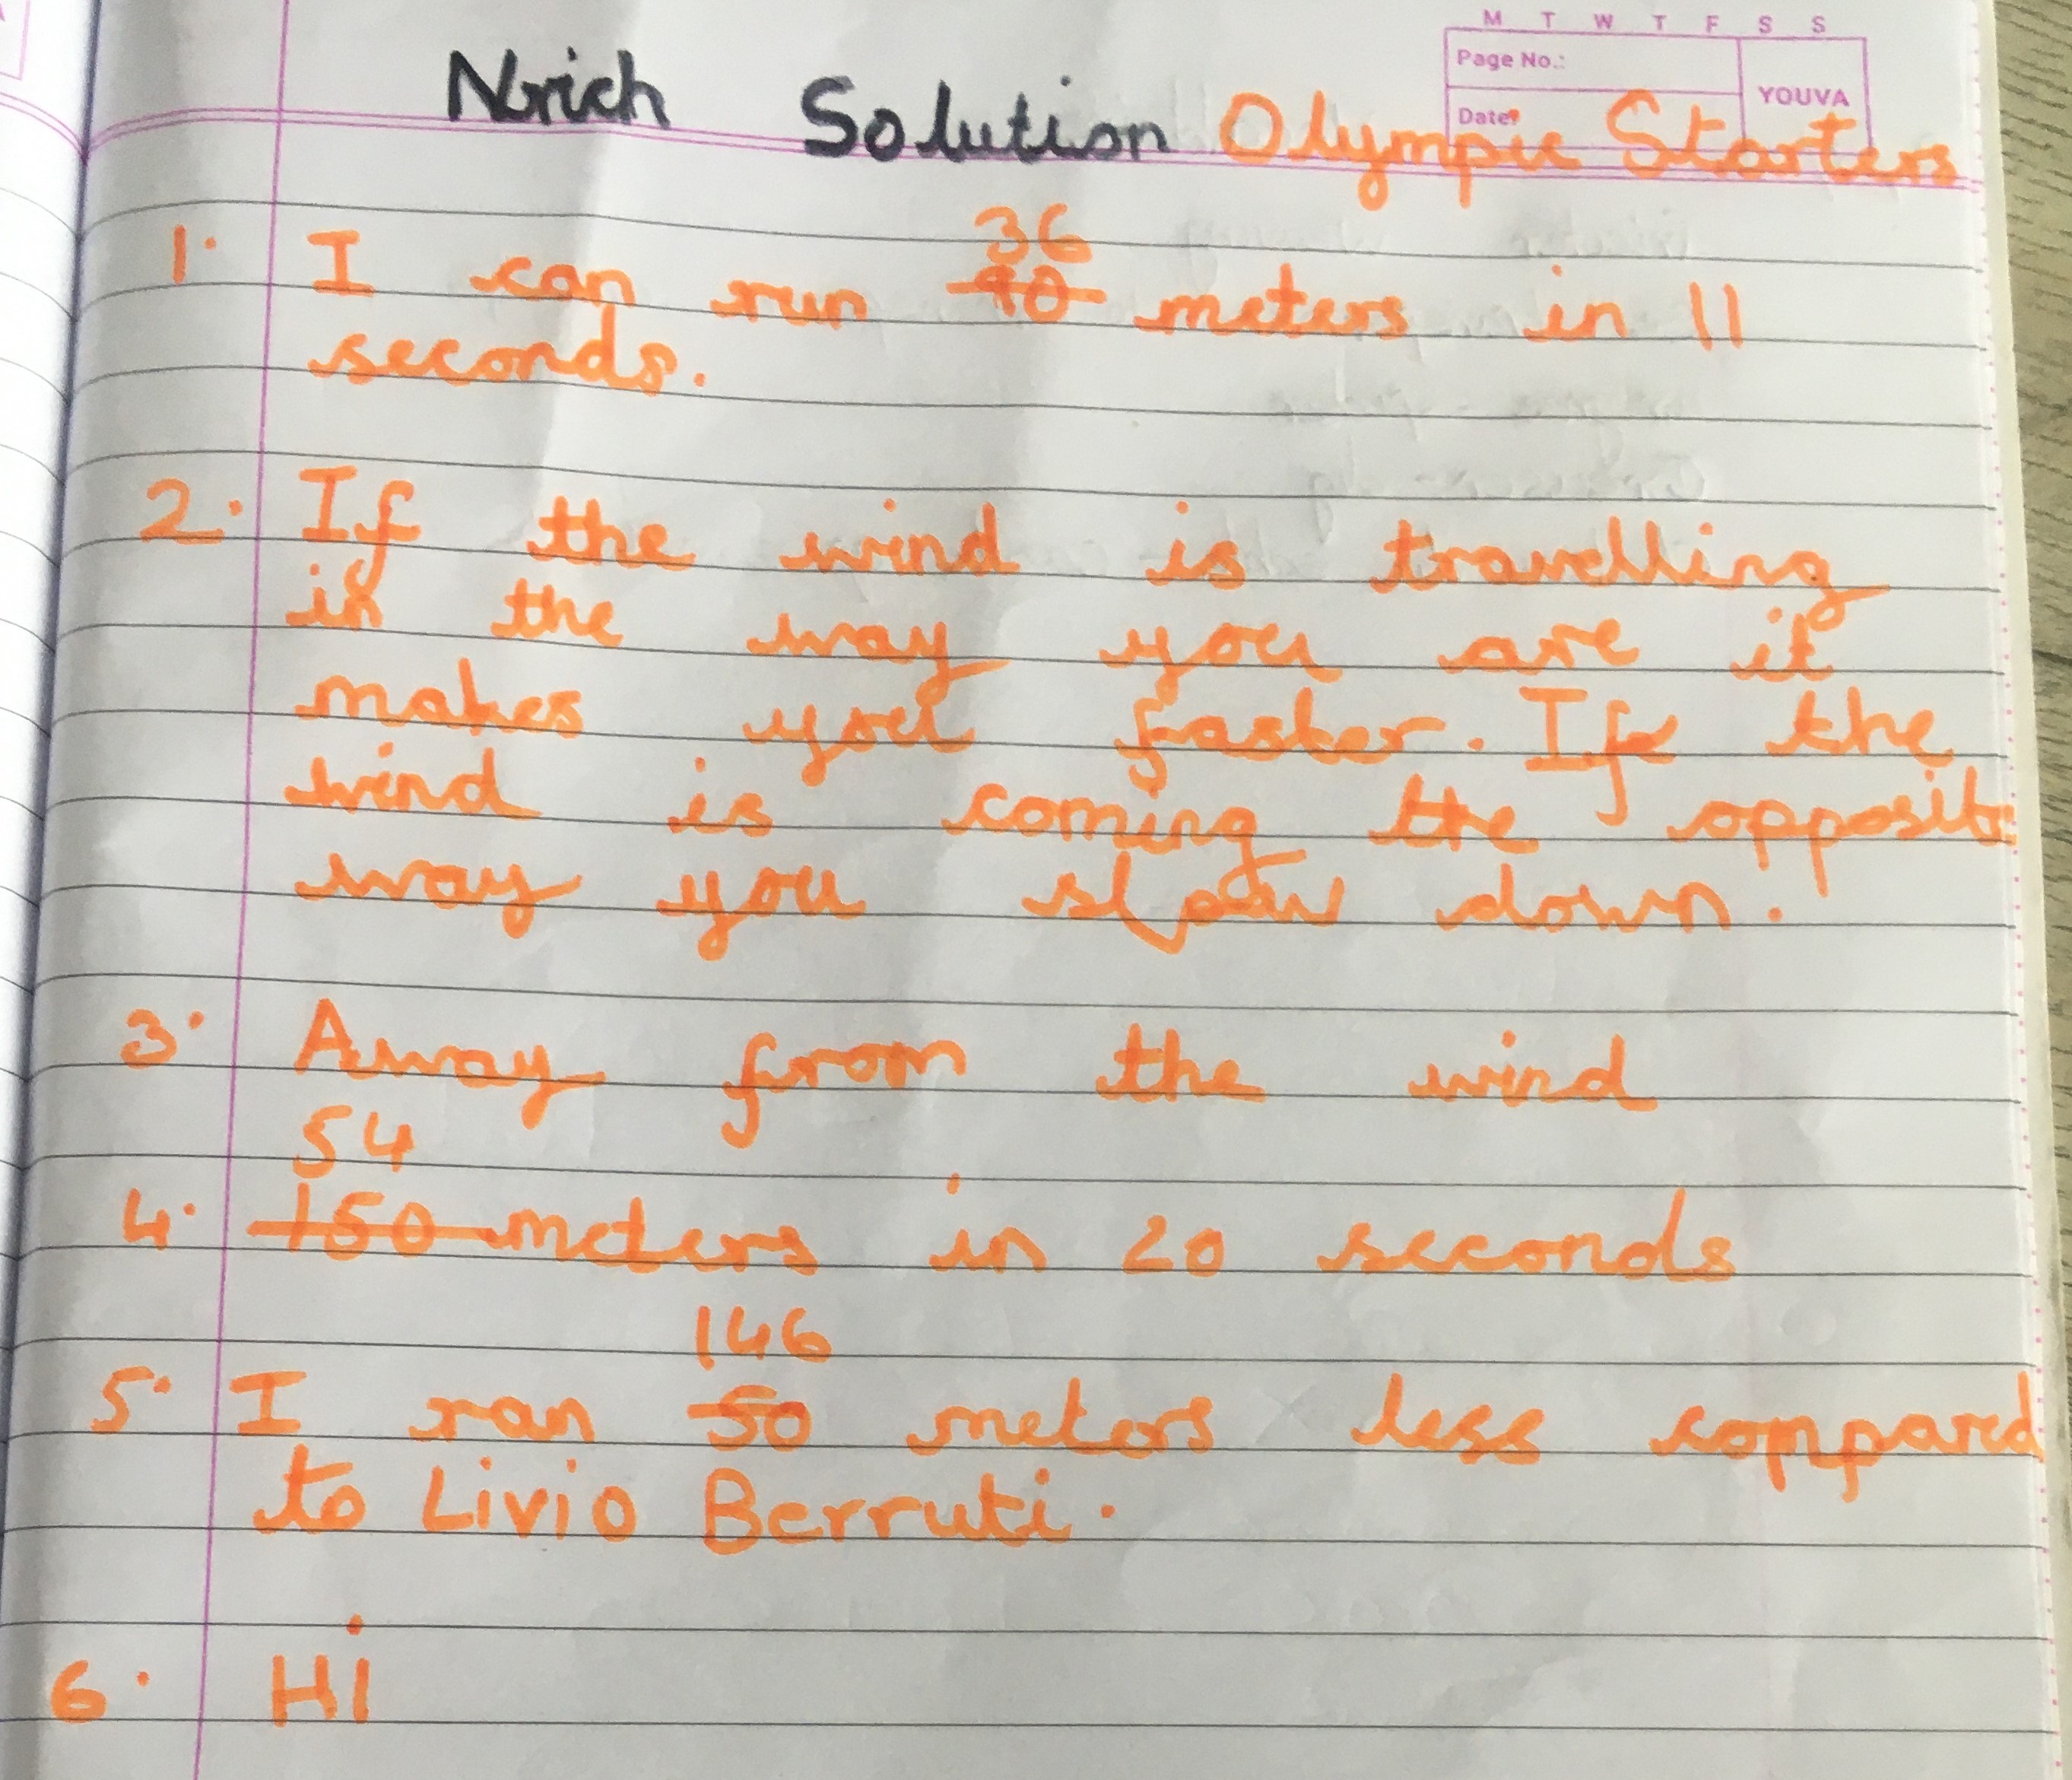 M T W T F S S
Page No.:
YOUVA
Date:
Nrich Solution Olympic Starters
36
1. I can run 90 meters in 11
seconds.
2. If the wind is travelling
in the way you are it
makes you faster. If the
wind is coming the opposite
way you slow down.
3. Away from the wind
54
4. 150 meters in 20 seconds
146
5. I ran 50 meters less compared
to Livio Berruti.
6. Hi